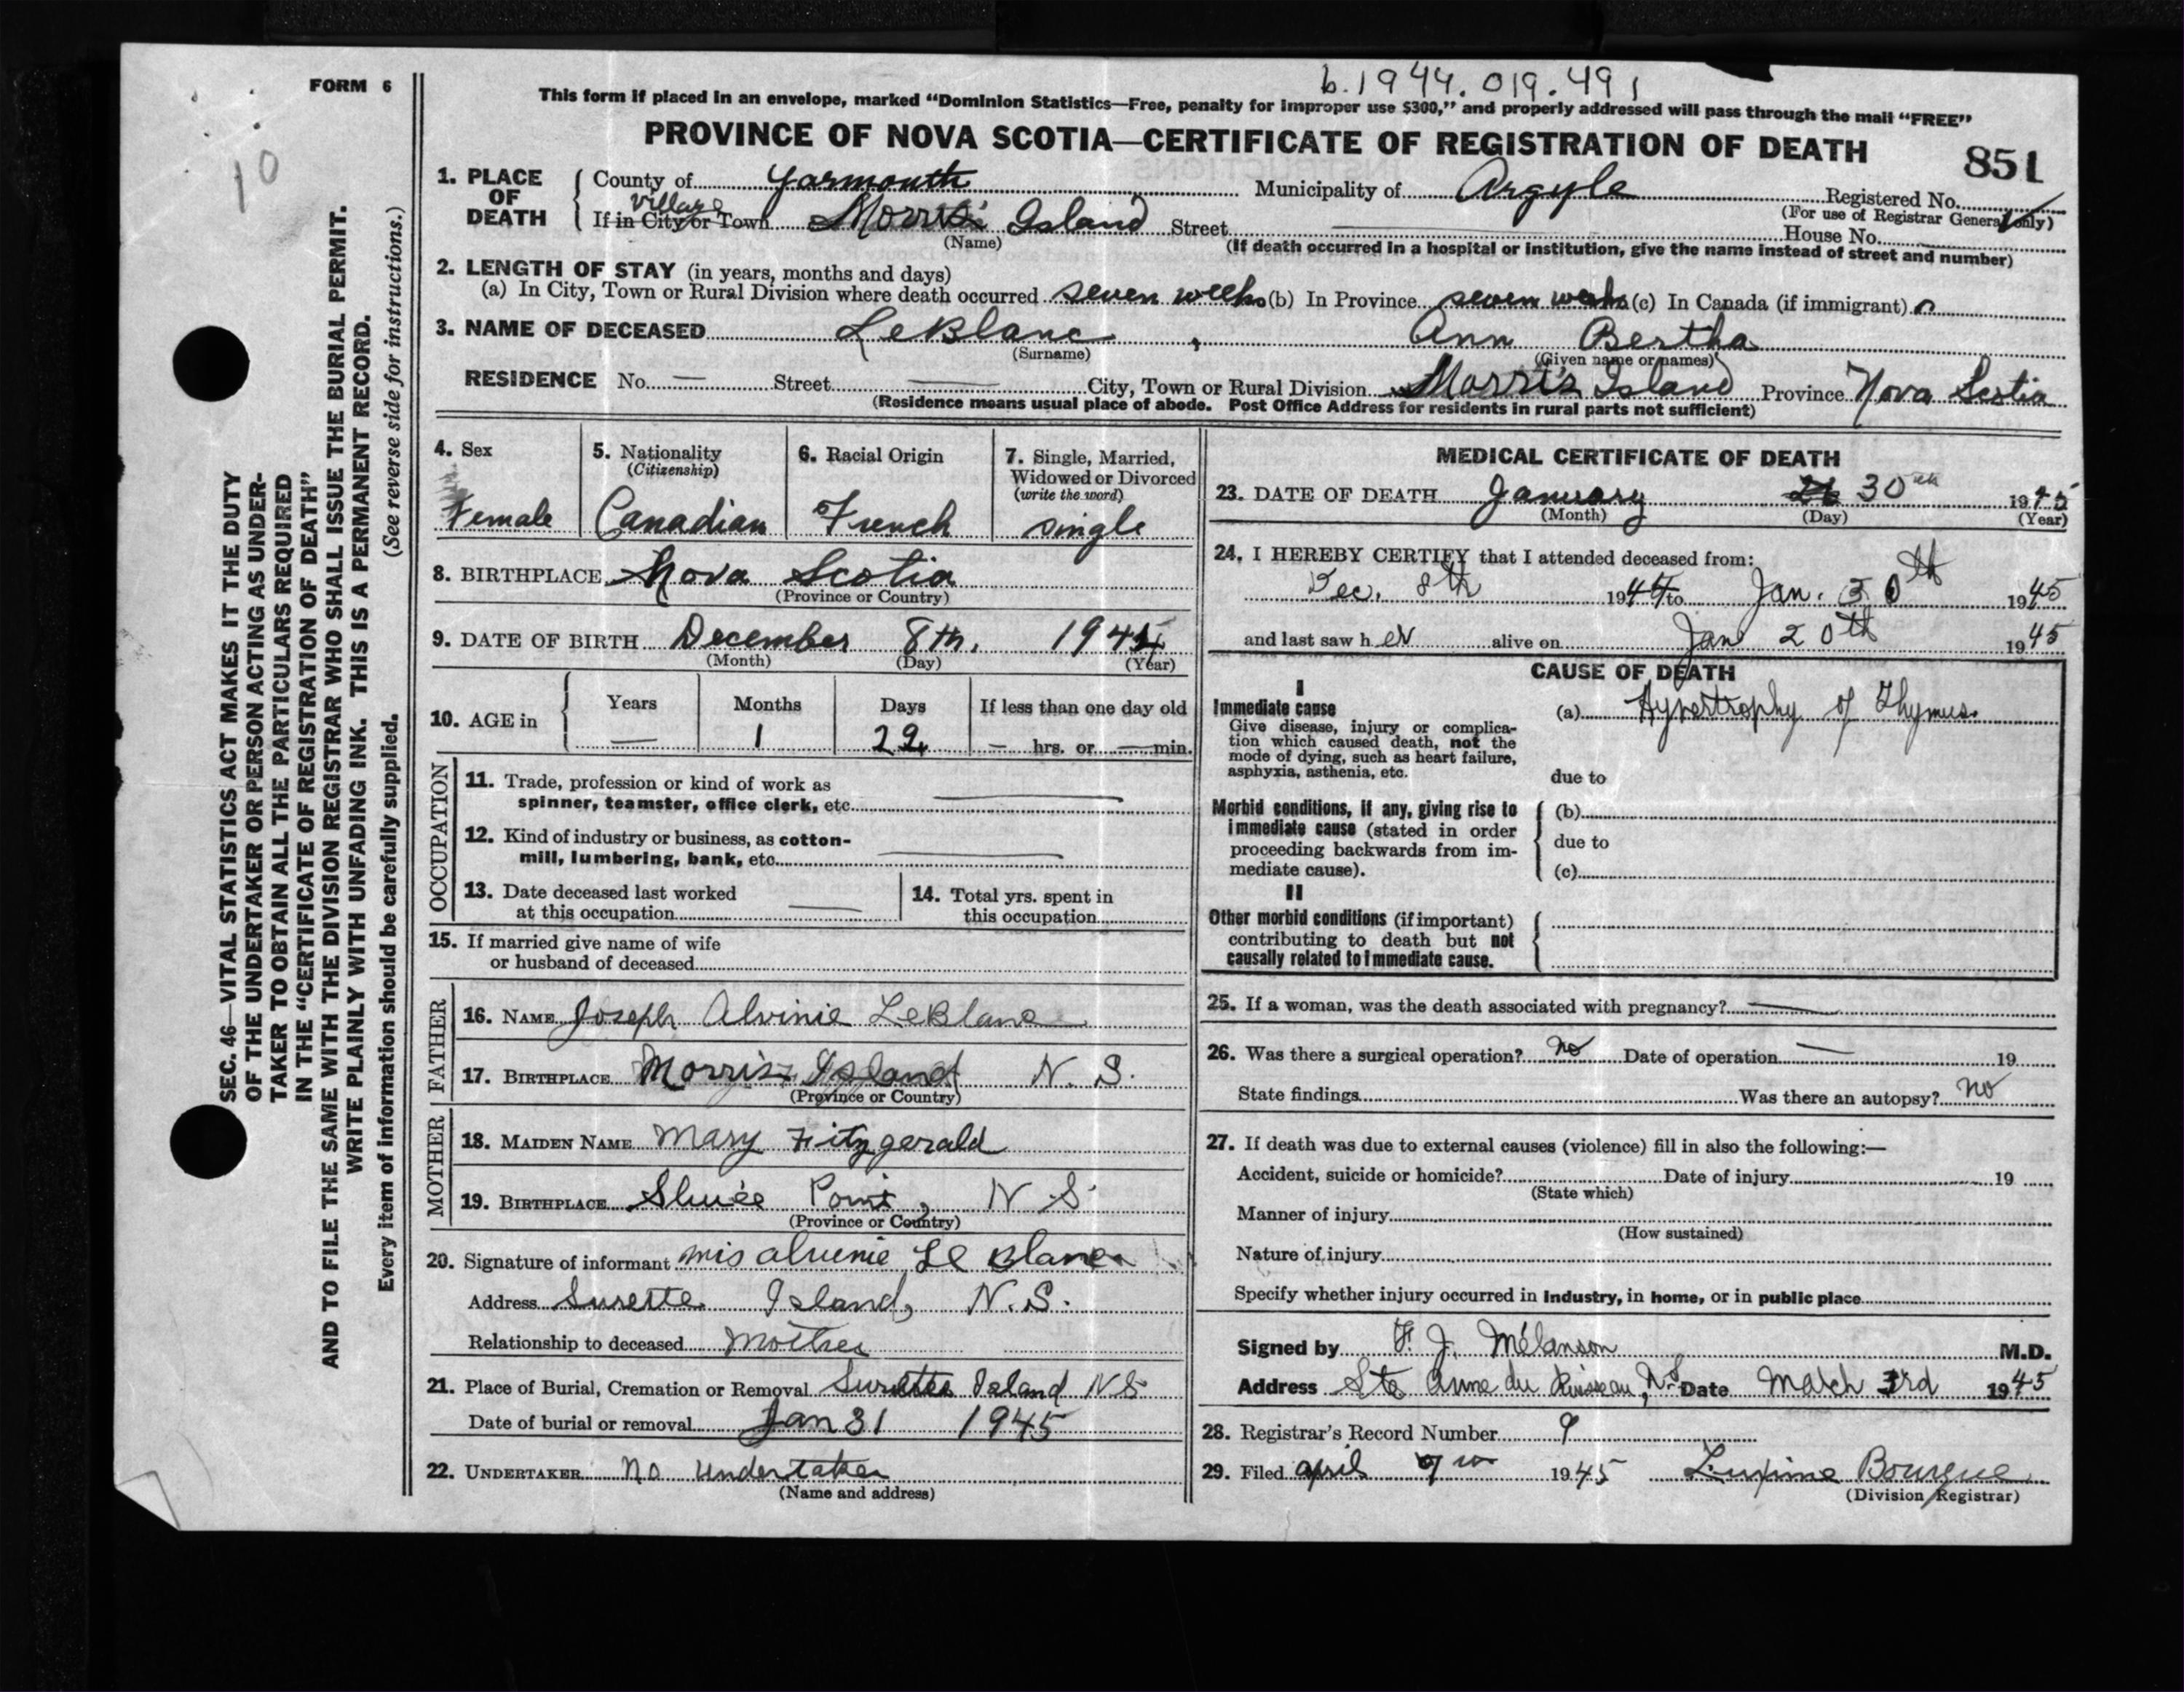 b. 1944. 019. 491
FORM 6
This form if placed in an envelope, marked “Dominion Statistics—Free, penalty for improper use $300,” and properly addressed will pass through the mail “FREE”
PROVINCE OF NOVA SCOTIA—CERTIFICATE OF REGISTRATION OF DEATH
851
10
1. PLACE OF DEATH
County of Yarmouth Municipality of Argyle Registered No.
(For use of Registrar General only)
Village
If in City or Town Morris Island Street — House No.
(Name) (If death occurred in a hospital or institution, give the name instead of street and number)
2. LENGTH OF STAY (in years, months and days)
(a) In City, Town or Rural Division where death occurred seven weeks (b) In Province seven weeks (c) In Canada (if immigrant)
3. NAME OF DECEASED LeBlanc, Ann Bertha
(Surname) (Given name or names)
RESIDENCE No. — Street — City, Town or Rural Division Morris Island Province Nova Scotia
(Residence means usual place of abode. Post Office Address for residents in rural parts not sufficient)
4. Sex Female
5. Nationality (Citizenship) Canadian
6. Racial Origin French
7. Single, Married, Widowed or Divorced (write the word) single
8. BIRTHPLACE Nova Scotia
(Province or Country)
9. DATE OF BIRTH December 8th, 1944
(Month) (Day) (Year)
10. AGE in
Years Months Days If less than one day old
— 1 22 — hrs. or — min.
OCCUPATION
11. Trade, profession or kind of work as
spinner, teamster, office clerk, etc. —
12. Kind of industry or business, as cotton-
mill, lumbering, bank, etc. —
13. Date deceased last worked
at this occupation —
14. Total yrs. spent in
this occupation
15. If married give name of wife
or husband of deceased
FATHER
16. NAME Joseph Alvinie LeBlanc
17. BIRTHPLACE Morris Island N. S.
(Province or Country)
MOTHER
18. MAIDEN NAME Mary Fitzgerald
19. BIRTHPLACE Sluice Point, N S
(Province or Country)
20. Signature of informant mis alvinie Le Blanc
Address Surette Island, N. S.
Relationship to deceased Mother
21. Place of Burial, Cremation or Removal Surettes Island N S
Date of burial or removal Jan 31 1945
22. UNDERTAKER No undertaker
(Name and address)
MEDICAL CERTIFICATE OF DEATH
23. DATE OF DEATH January 30th 1945
(Month) (Day) (Year)
24. I HEREBY CERTIFY that I attended deceased from:
Dec. 8th 1944 to Jan. 30th 1945
and last saw her alive on Jan 20th 1945
CAUSE OF DEATH
I
Immediate cause
Give disease, injury or complica-
tion which caused death, not the
mode of dying, such as heart failure,
asphyxia, asthenia, etc.
(a) Hypertrophy of Thymus.
due to
Morbid conditions, if any, giving rise to
immediate cause (stated in order
proceeding backwards from im-
mediate cause).
(b)
due to
(c)
II
Other morbid conditions (if important)
contributing to death but not
causally related to immediate cause.
25. If a woman, was the death associated with pregnancy? —
26. Was there a surgical operation? No Date of operation — 19
State findings Was there an autopsy? No
27. If death was due to external causes (violence) fill in also the following:—
Accident, suicide or homicide? Date of injury 19
(State which)
Manner of injury
(How sustained)
Nature of injury
Specify whether injury occurred in industry, in home, or in public place
Signed by F. J. Mélanson M.D.
Address Ste Anne du Ruisseau, N.S. Date March 3rd 1945
28. Registrar's Record Number 9
29. Filed April 1945 Bourque
(Division Registrar)
SEC. 46—VITAL STATISTICS ACT MAKES IT THE DUTY
OF THE UNDERTAKER OR PERSON ACTING AS UNDER-
TAKER TO OBTAIN ALL THE PARTICULARS REQUIRED
IN THE “CERTIFICATE OF REGISTRATION OF DEATH”
AND TO FILE THE SAME WITH THE DIVISION REGISTRAR WHO SHALL ISSUE THE BURIAL PERMIT.
WRITE PLAINLY WITH UNFADING INK. THIS IS A PERMANENT RECORD.
Every item of information should be carefully supplied. (See reverse side for instructions.)